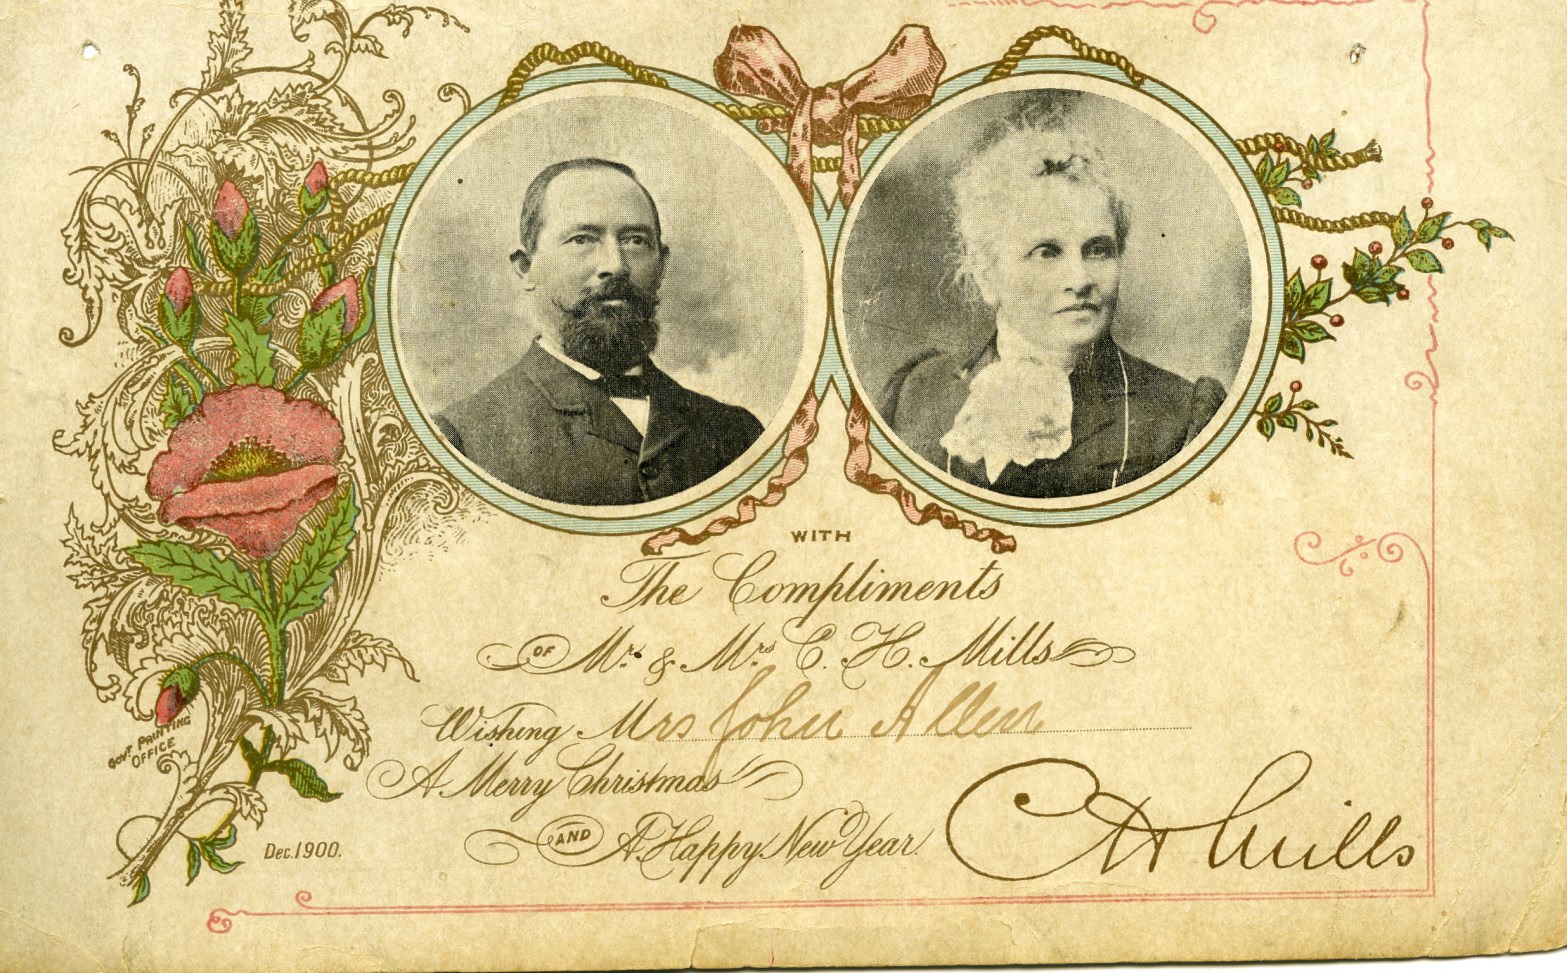 WITH
The Compliments
OF Mr. & Mrs. C. H. Mills
Wishing Mrs John Allen
A Merry Christmas
AND A Happy New Year.
C H Mills
GOVT PRINTING
OFFICE
Dec. 1900.